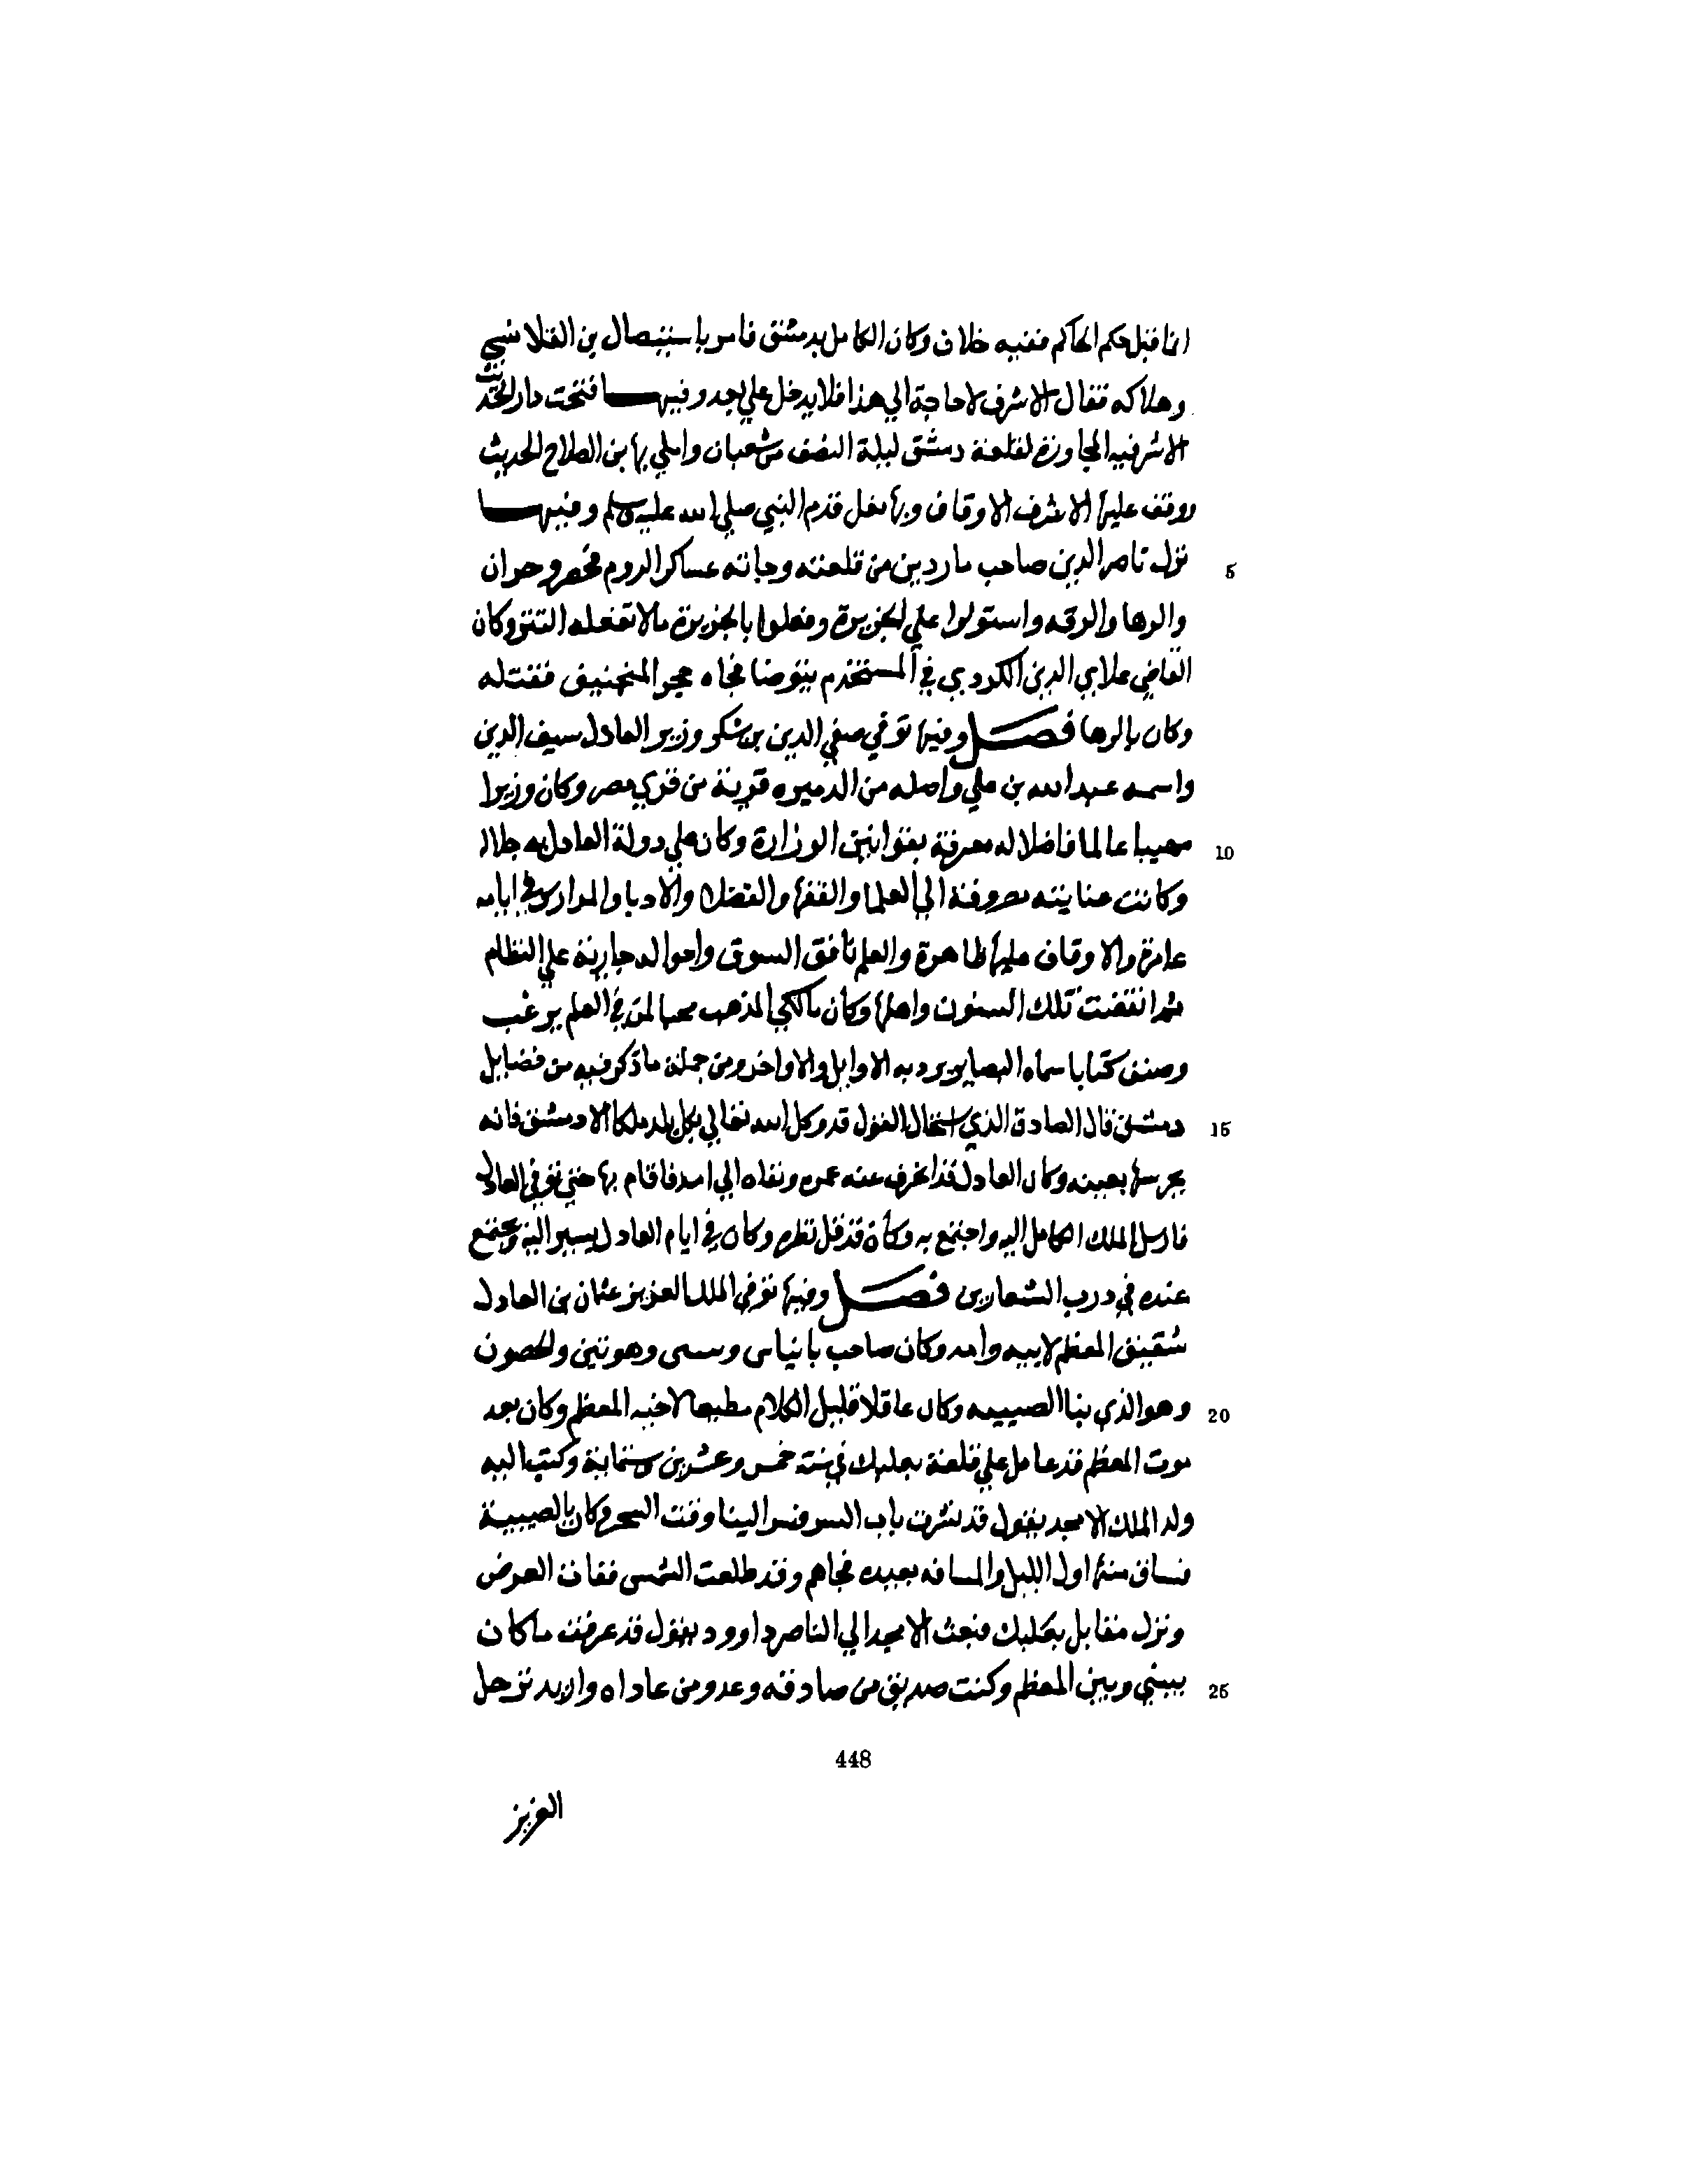 اما قبل حكم الحاكم ففيه خلاف وكان الكامل بدمشق فامر باستيصال بن القلانسي
وهلاكه فقال الاشرف لا حاجة الي هذا فلا يدخل علي احد وفيها فتحت دار الحديث
الاشرفيه المجاورة لقلعة دمشق ليلة النصف من شعبان واملي بها بن الصلاح الحديث
ووقف عليها الاشرف الاوقاف وبها نعل قدم النبي صلي الله عليه وسلم وفيها
5 نزل ناصر الدين صاحب ماردين من قلعته وجاته عساكر الروم فحصروا حران
والرها والرقه واستولوا علي الجزيرة وفعلوا بالجزيرة ما لا تفعله التتر وكان
القاضي علاي الدين الكردي في المستخدم يتوضا فجاه حجر المنجنيق فقتله
وكان بالرها فصل وفيها توفي صفي الدين بن شكر وزير العادل سيف الدين
واسمه عبد الله بن علي واصله من الدميره قرية من قري مصر وكان وزيرا
10 مهيبا عالما فاضلا له معرفة بقوانين الوزارة وكان علي دولة العادل به جلاله
وكانت عنايته مصروفة الي العلما والفقها والفضلا والادبا والمدارس في ايامه
عامرة والاوقاف عليها ظاهرة والعلم نافق السوق واحواله جارية علي النظام
ثم انقضت تلك السنون واهلها وكان مالكي المذهب محبا لمن في العلم يرغب
وصنف كتابا سماه البصاير يرد به الاوايل والاواخر ومن جملة ما ذكر فيه من فضايل
15 دمشق قال الصادق الذي القول قد وكل الله تعالي بكل بلد ملكا الا دمشق فانه
يحرسها بعينه وكان العادل قد انحرف عنه عمره ونفاه الي امد فاقام بها حتي توفي العادل
فارسل الملك الكامل اليه واجتمع به وكان قد قل نظره وكان في ايام العادل يسير اليه ويجتمع
عنده في درب الشعارين فصل وفيها توفي الملك العزيز عثمان بن العادل
شقيق المعظم لابيه وامه وكان صاحب بانياس وهونين والحصون
20 وهو الذي بنا الصبيبه وكان عاقلا قليل الكلام مطيعا لاخيه المعظم وكان بعد
موت المعظم قد عامل علي قلعة بعلبك في سنة خمس وعشرين وستماية وكتب اليه
ولد الملك الامجد يقول قد نشرت باب السر فسر الينا وقت السحر وكان بالصبيبة
فساق منها اول الليل والمسافه بعيده فجاهم وقد طلعت الشمس ففات الغرض
ونزل مقابل بعلبك فبعث الامجد الي الناصر داوود يقول قد عرفت ما كان
25 بيني وبين المعظم وكنت صديق من صادقه وعدو من عاداه ولابد ترحل
448
العزيز